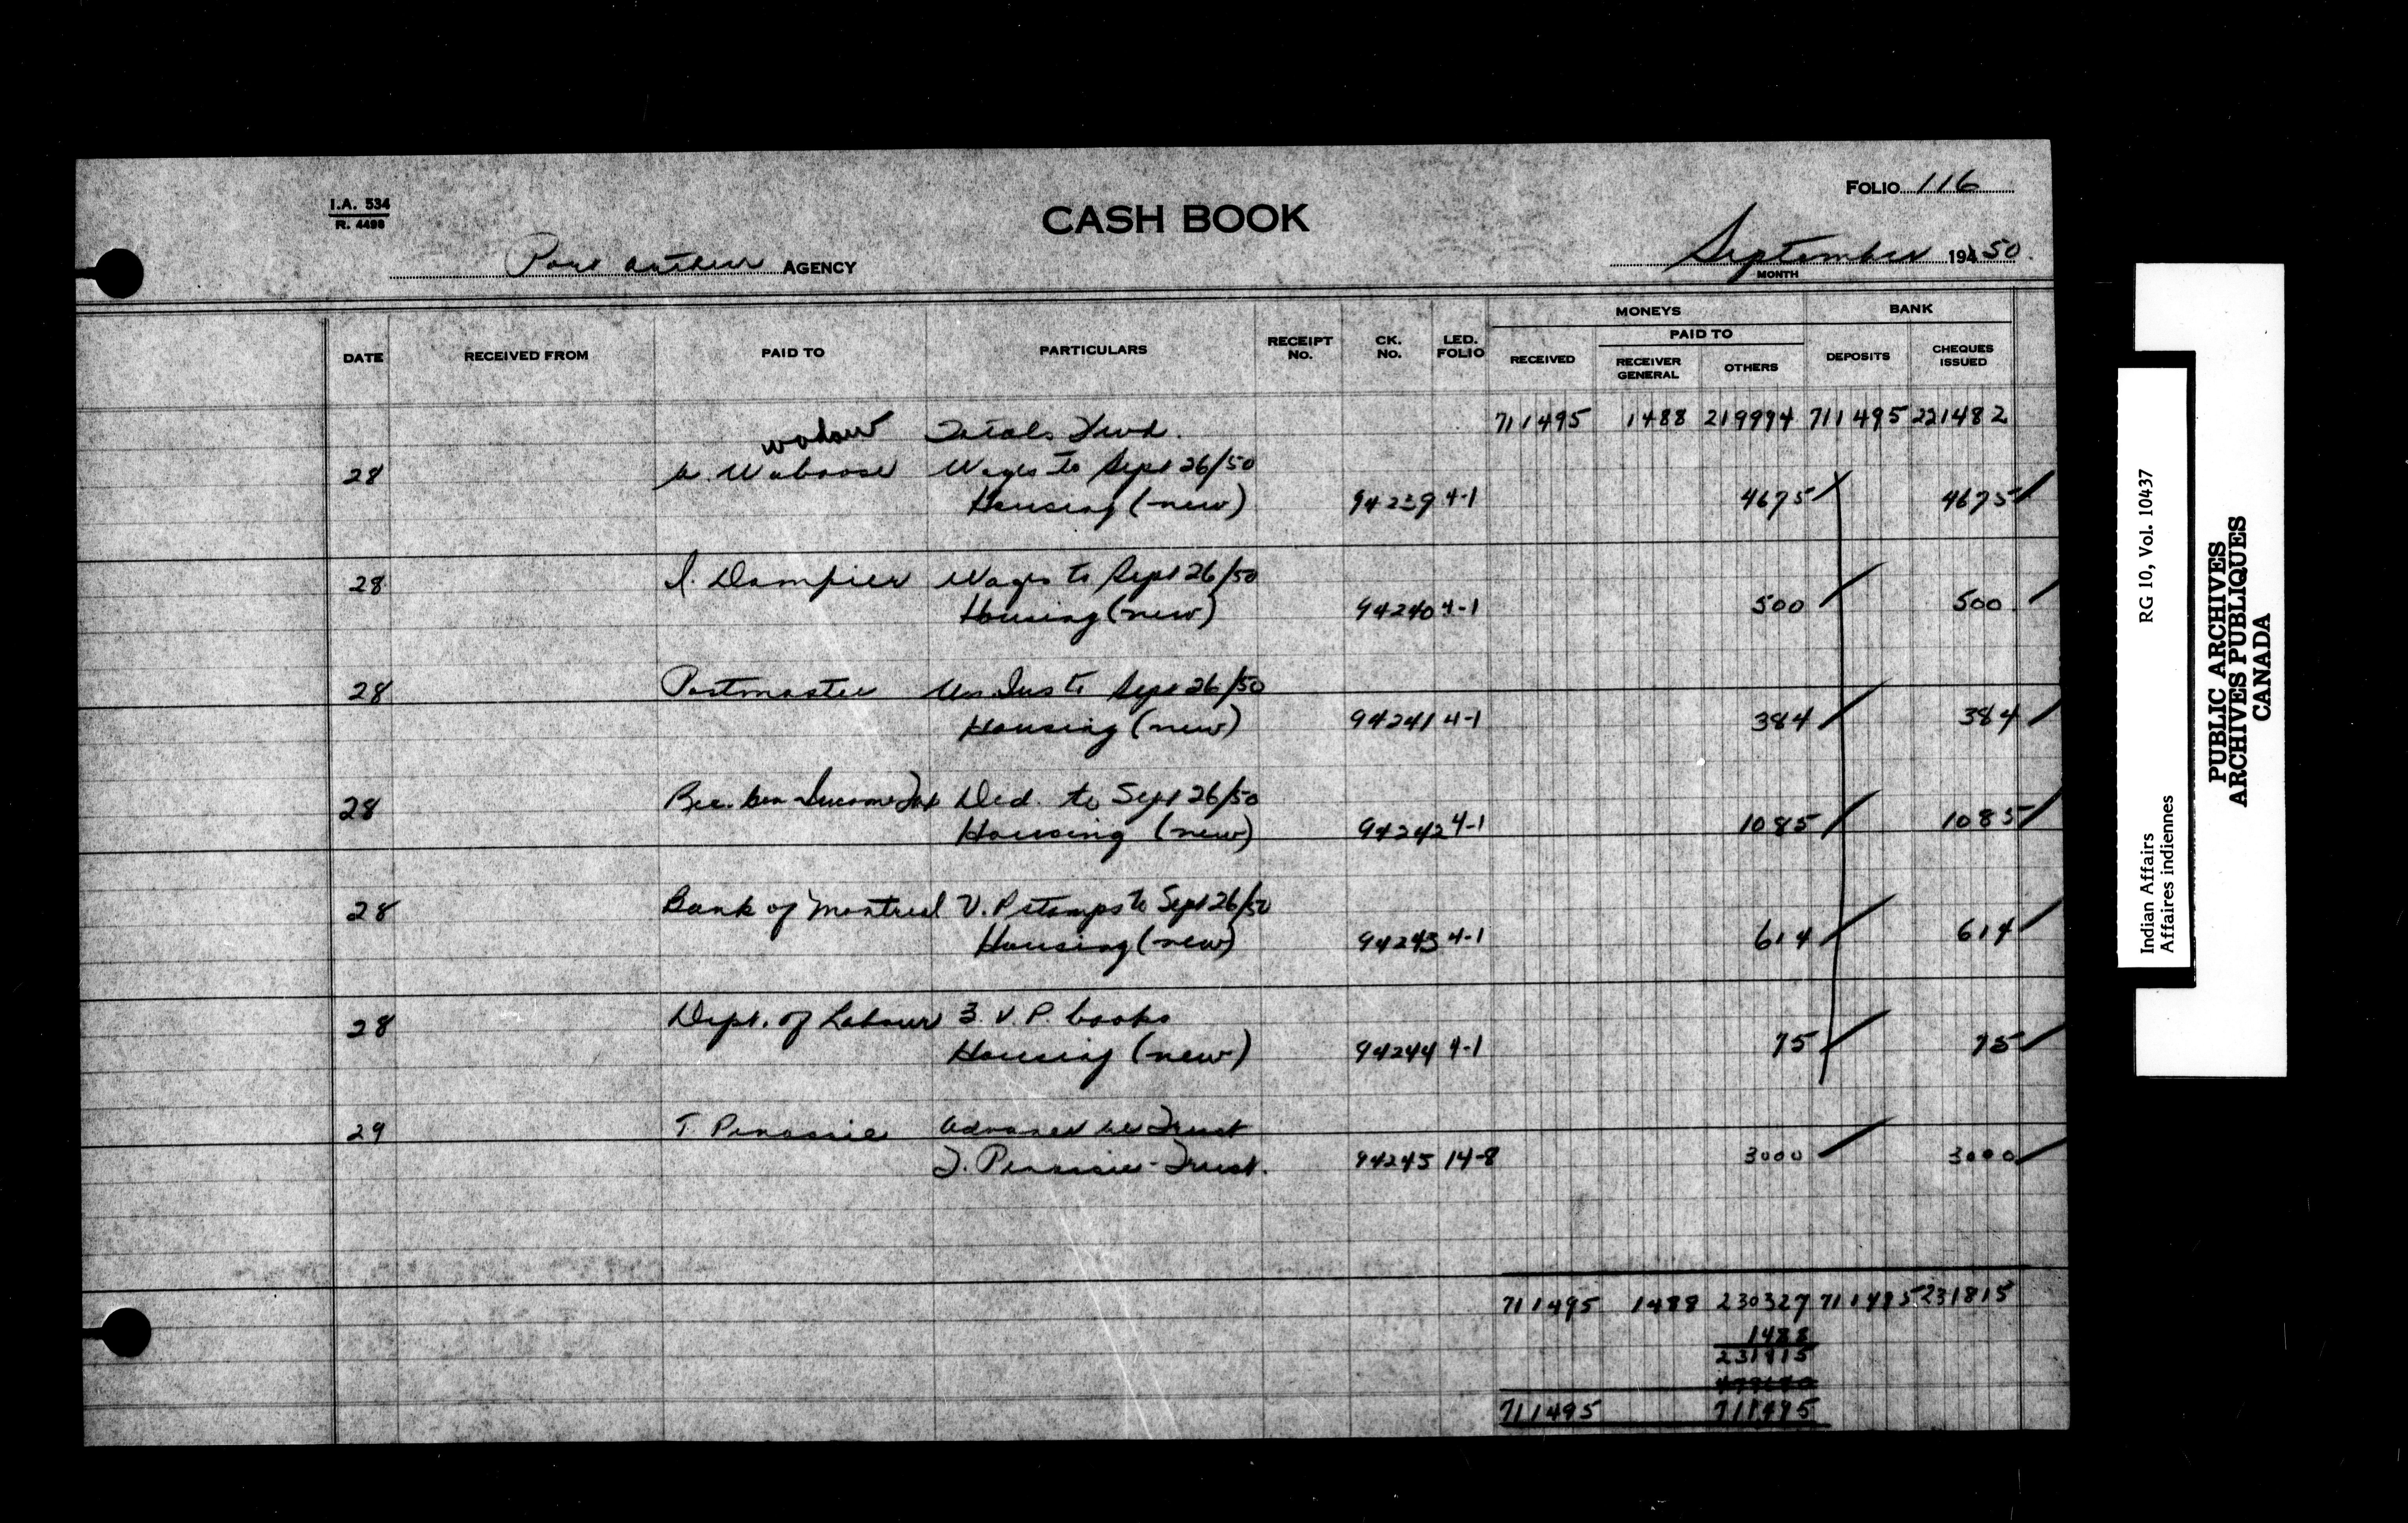 I.A. 534
R. 4498
CASH BOOK
FOLIO 116
Port Arthur AGENCY
September 19450.
MONTH
MONEYS BANK
PAID TO
DATE RECEIVED FROM PAID TO PARTICULARS RECEIPT No. CK. No. LED. FOLIO RECEIVED RECEIVER GENERAL OTHERS DEPOSITS CHEQUES ISSUED
Totals Fwd. 711495 1488 219994 711495 221482
28 A. Waboose Wages to Sept 26/50
Housing (new) 94239 4-1 4675 4675
28 I. Dampier Wages to Sept 26/50
Housing (new) 94240 4-1 500 500
28 Postmaster Un Ins to Sept 26/50
Housing (new) 94241 4-1 384 384
28 Rec. Gen Income Tax Ded. to Sept 26/50
Housing (new) 94242 4-1 1085 1085
28 Bank of Montreal V.P stamps to Sept 26/50
Housing (new) 94243 4-1 614 614
28 Dept. of Labour 3 V.P. books
Housing (new) 94244 4-1 75 75
29 T. Penassie Advance re Trust
T. Penassie-Trust. 94245 14-8 3000 3000
711495 1488 230327 711495 231815
1488
231815
711495 711495
Indian Affairs RG 10, Vol. 10437
Affaires indiennes
PUBLIC ARCHIVES
ARCHIVES PUBLIQUES
CANADA